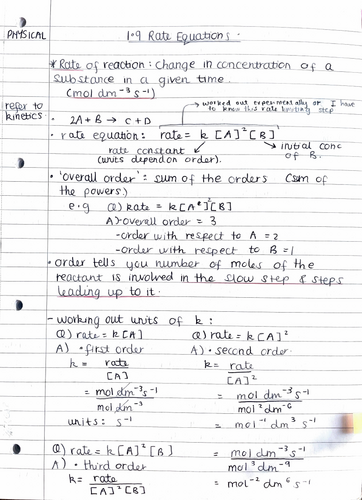 PHYSICAL
1.9 Rate Equations.
* Rate of reaction: Change in concentration of a
substance in a given time.
(mol dm⁻³ s⁻¹)
refer to
kinetics.
worked out experimentally or I have
to know this rate limiting step
• 2A + B → C + D
• rate equation: rate = k [A]² [B]¹
rate constant
(units depend on order).
initial conc
of B.
• 'overall order': sum of the orders (sum of
the powers)
e.g Q) Rate = k[A]²[B]
A) • overall order = 3
- order with respect to A = 2
- order with respect to B = 1
• order tells you number of moles of the
reactant is involved in the slow step & steps
leading up to it.
- working out units of k:
Q) rate = k[A]
Q) rate = k[A]²
A) • first order
A) • second order.
k = rate
[A]
k = rate
[A]²
= mol dm⁻³ s⁻¹
mol dm⁻³
= mol dm⁻³ s⁻¹
mol² dm⁻⁶
units: s⁻¹
= mol⁻¹ dm³ s⁻¹
Q) rate = k[A]² [B]
= mol dm⁻³ s⁻¹
mol³ dm⁻⁹
A) • third order
k = rate
[A]² [B]
= mol⁻² dm⁶ s⁻¹